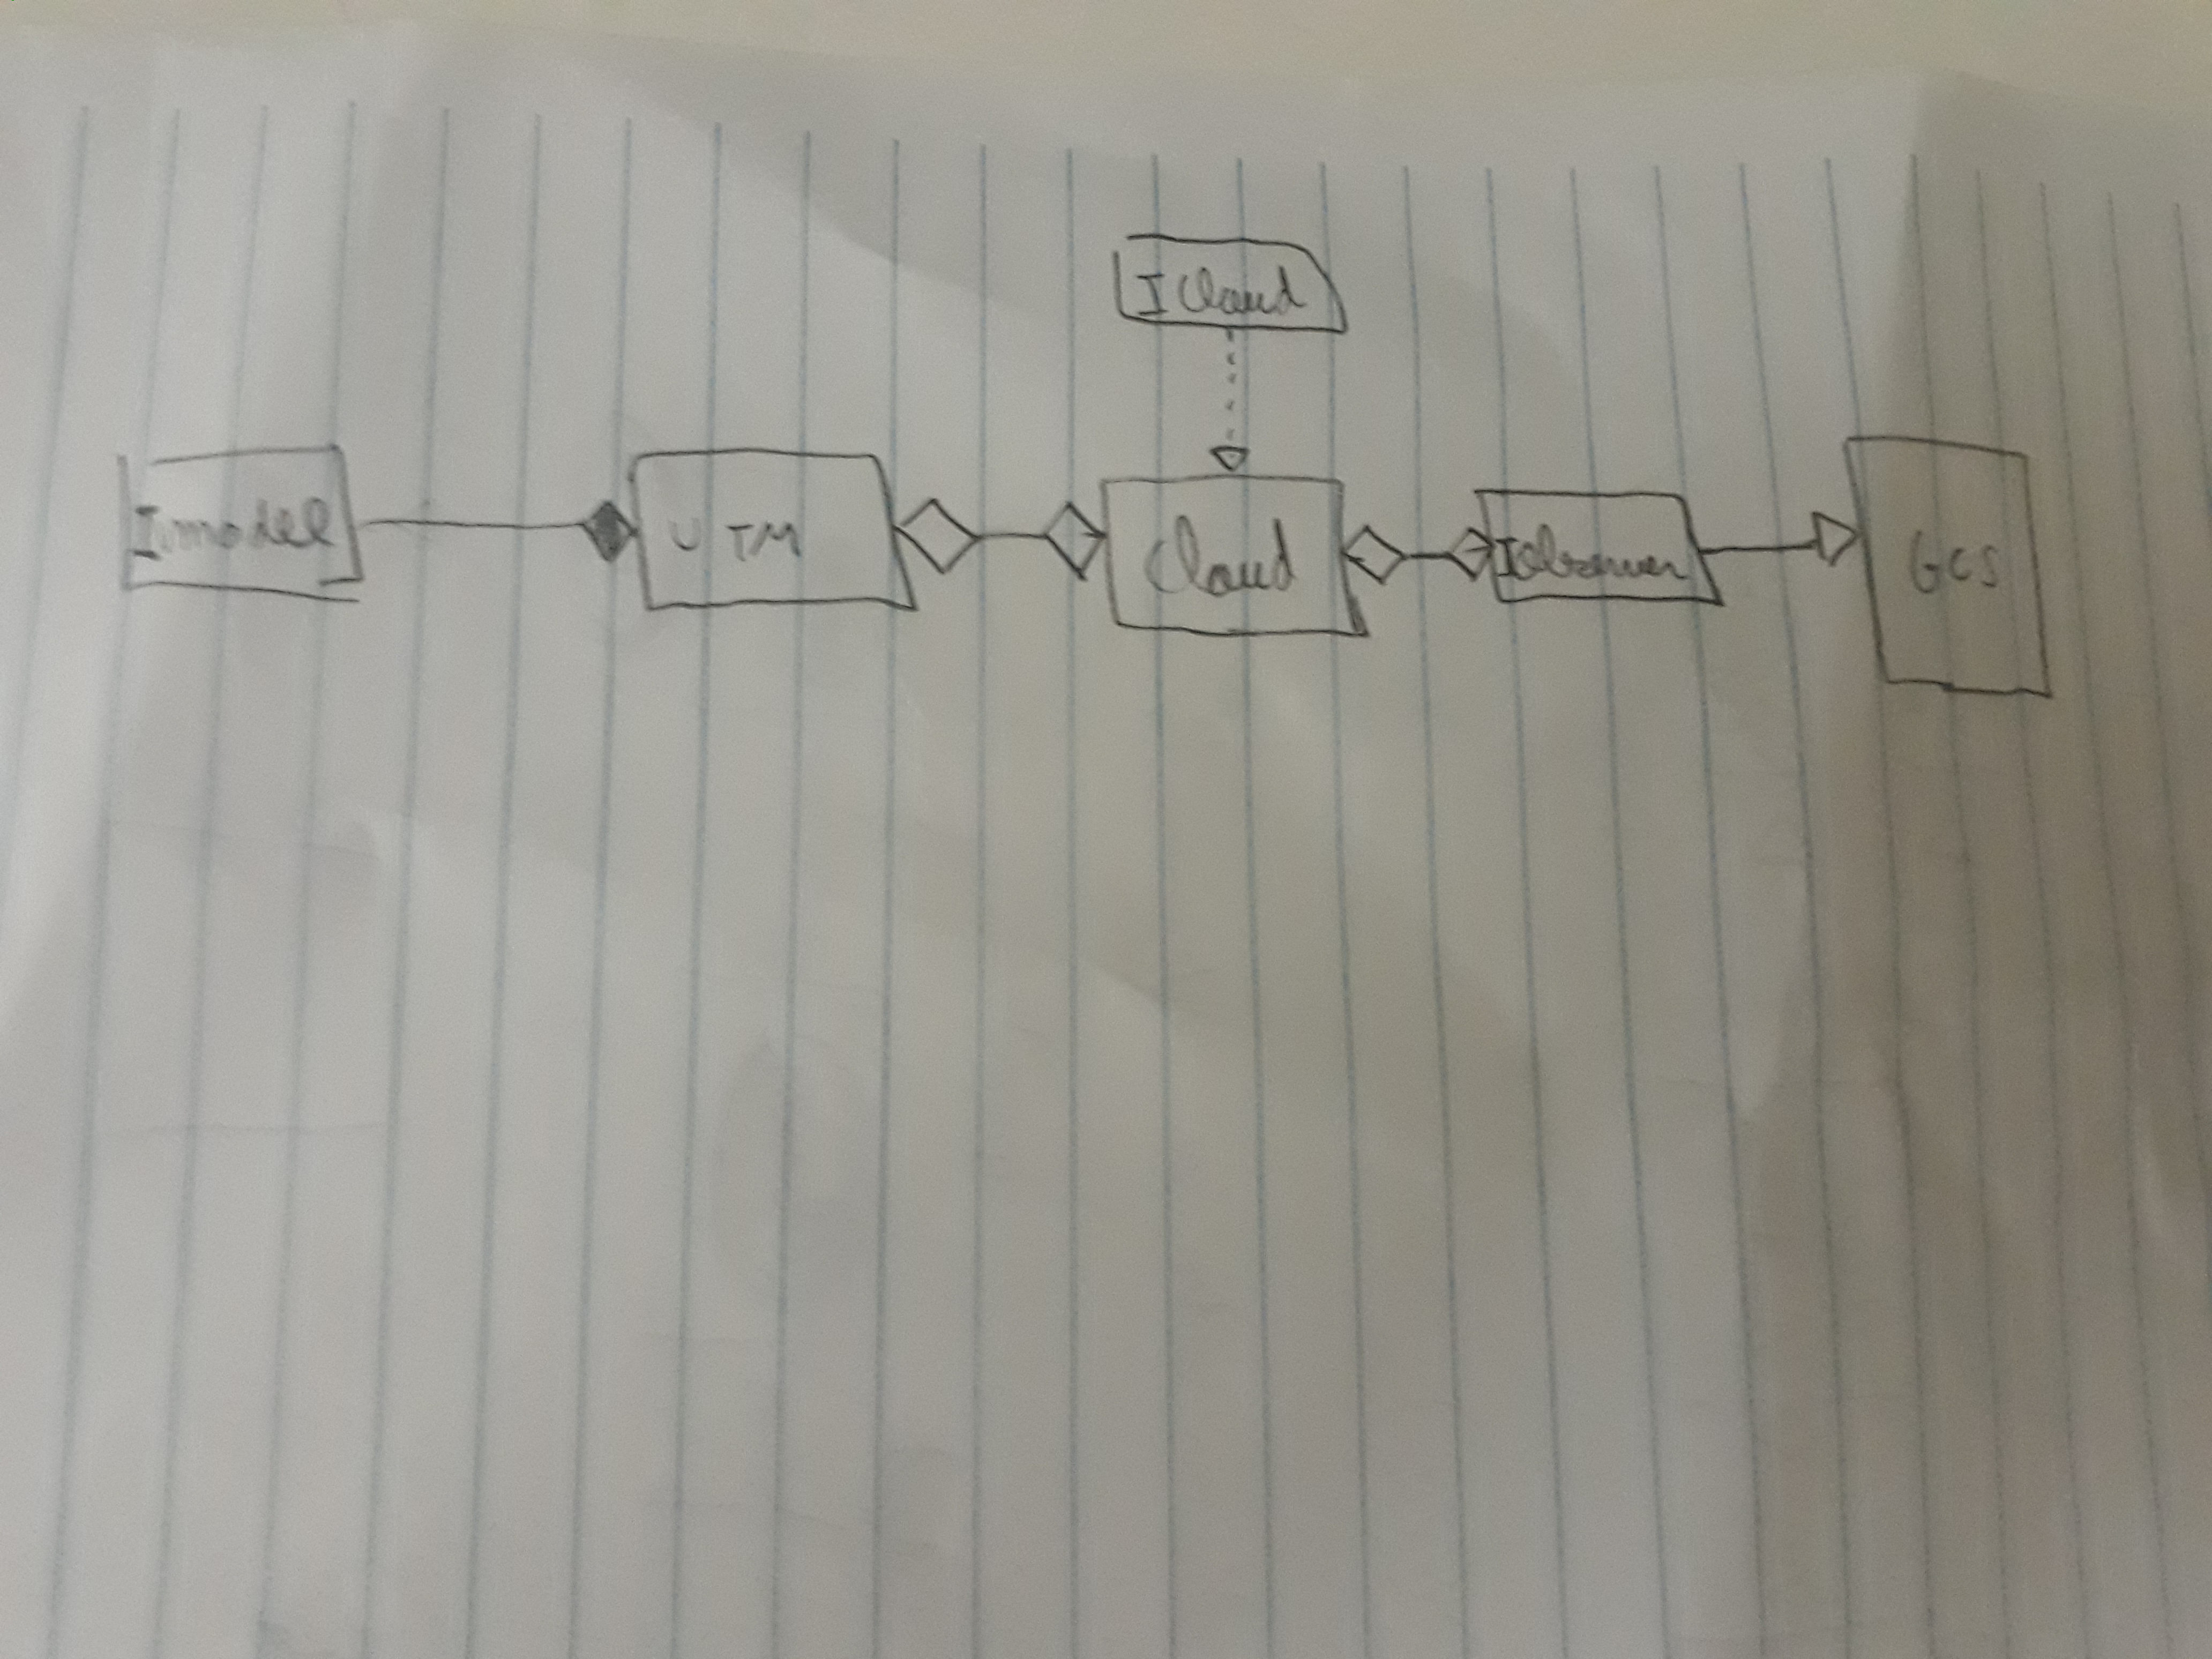 ICloud
Imodel
UTM
Cloud
IObserver
GCS